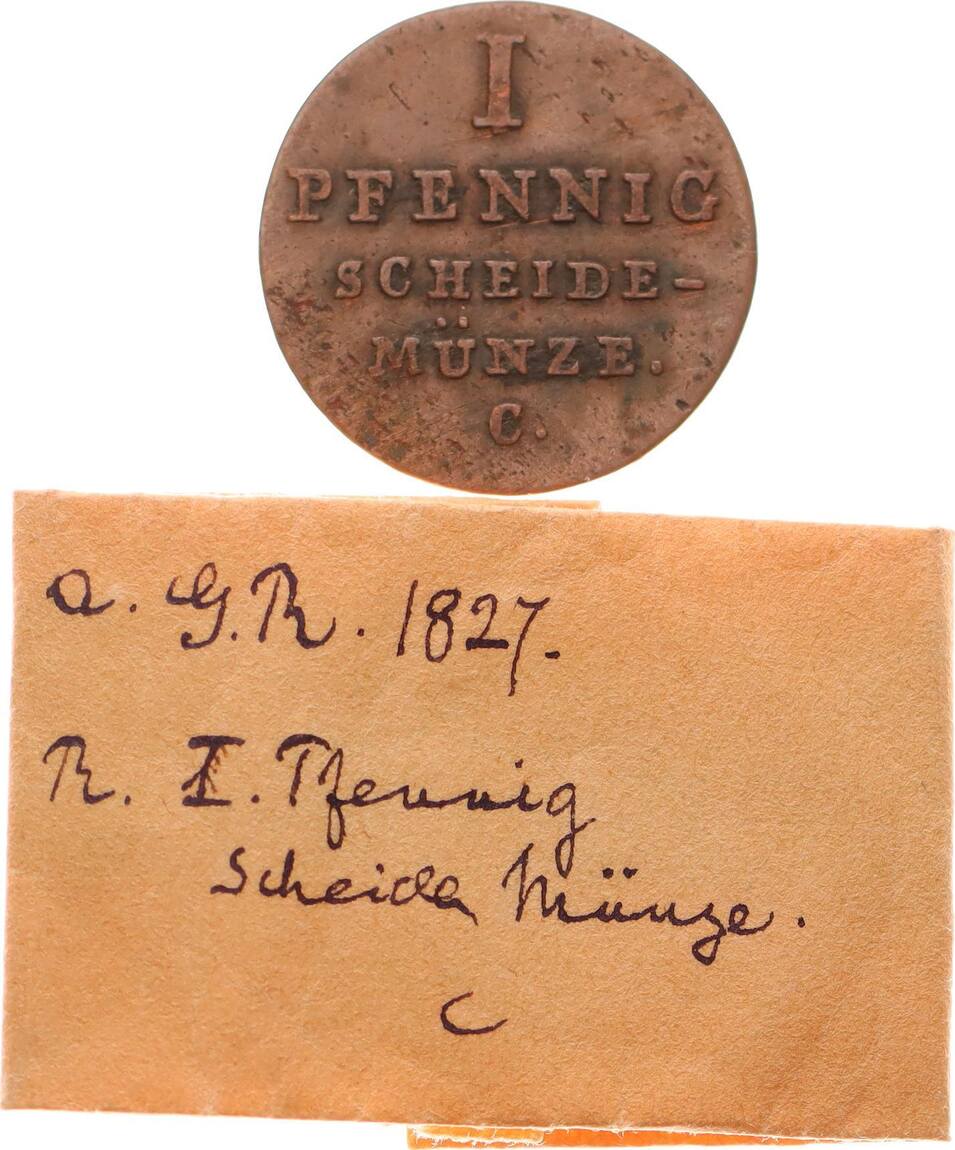 I
PFENNIG
SCHEIDE-
MÜNZE.
C.
a. G.R. 1827.
R. I. Pfennig
Scheide Münze.
C